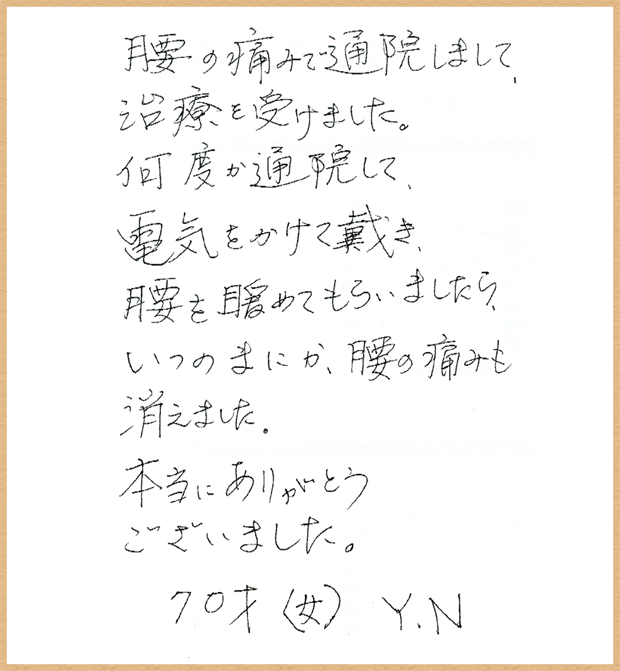 腰の痛みで通院しまして、
治療を受けました。
何度か通院して、
電気をかけて戴き、
腰を暖めてもらいましたら、
いつのまにか、腰の痛みも
消えました。
本当にありがとう
ございました。
70才(女) Y.N